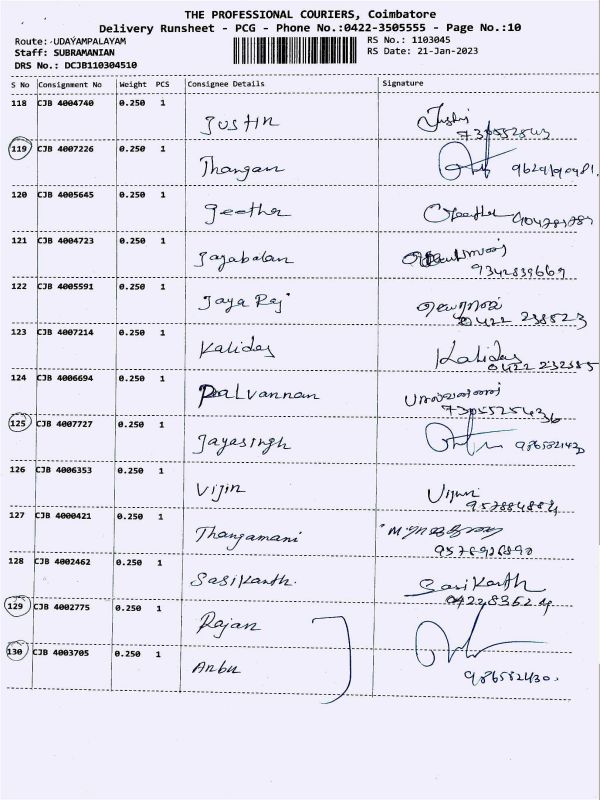 THE PROFESSIONAL COURIERS, Coimbatore
Delivery Runsheet - PCG - Phone No.:0422-3505555 - Page No.:10
Route: UDAYAMPALAYAM
RS No.: 1103045
Staff: SUBRAMANIAN
RS Date: 21-Jan-2023
DRS No.: DCJB110304510
S No Consignment No Weight PCS Consignee Details Signature
118 CJB 4004740 0.250 1 Justin
119 CJB 4007226 0.250 1 Thangam
120 CJB 4005645 0.250 1 Geetha
121 CJB 4004723 0.250 1 Jayabalan
9342839669
122 CJB 4005591 0.250 1 Jaya Raj
0422 238523
123 CJB 4007214 0.250 1 Kalidas Kalidas
0422 232585
124 CJB 4006694 0.250 1 Palvannan
125 CJB 4007727 0.250 1 Jayasingh
126 CJB 4006353 0.250 1 Vijin
127 CJB 4000421 0.250 1 Thangamani
128 CJB 4002462 0.250 1 Sasikanth. Sasikanth
129 CJB 4002775 0.250 1 Rajan
130 CJB 4003705 0.250 1 Anbu
986582430.